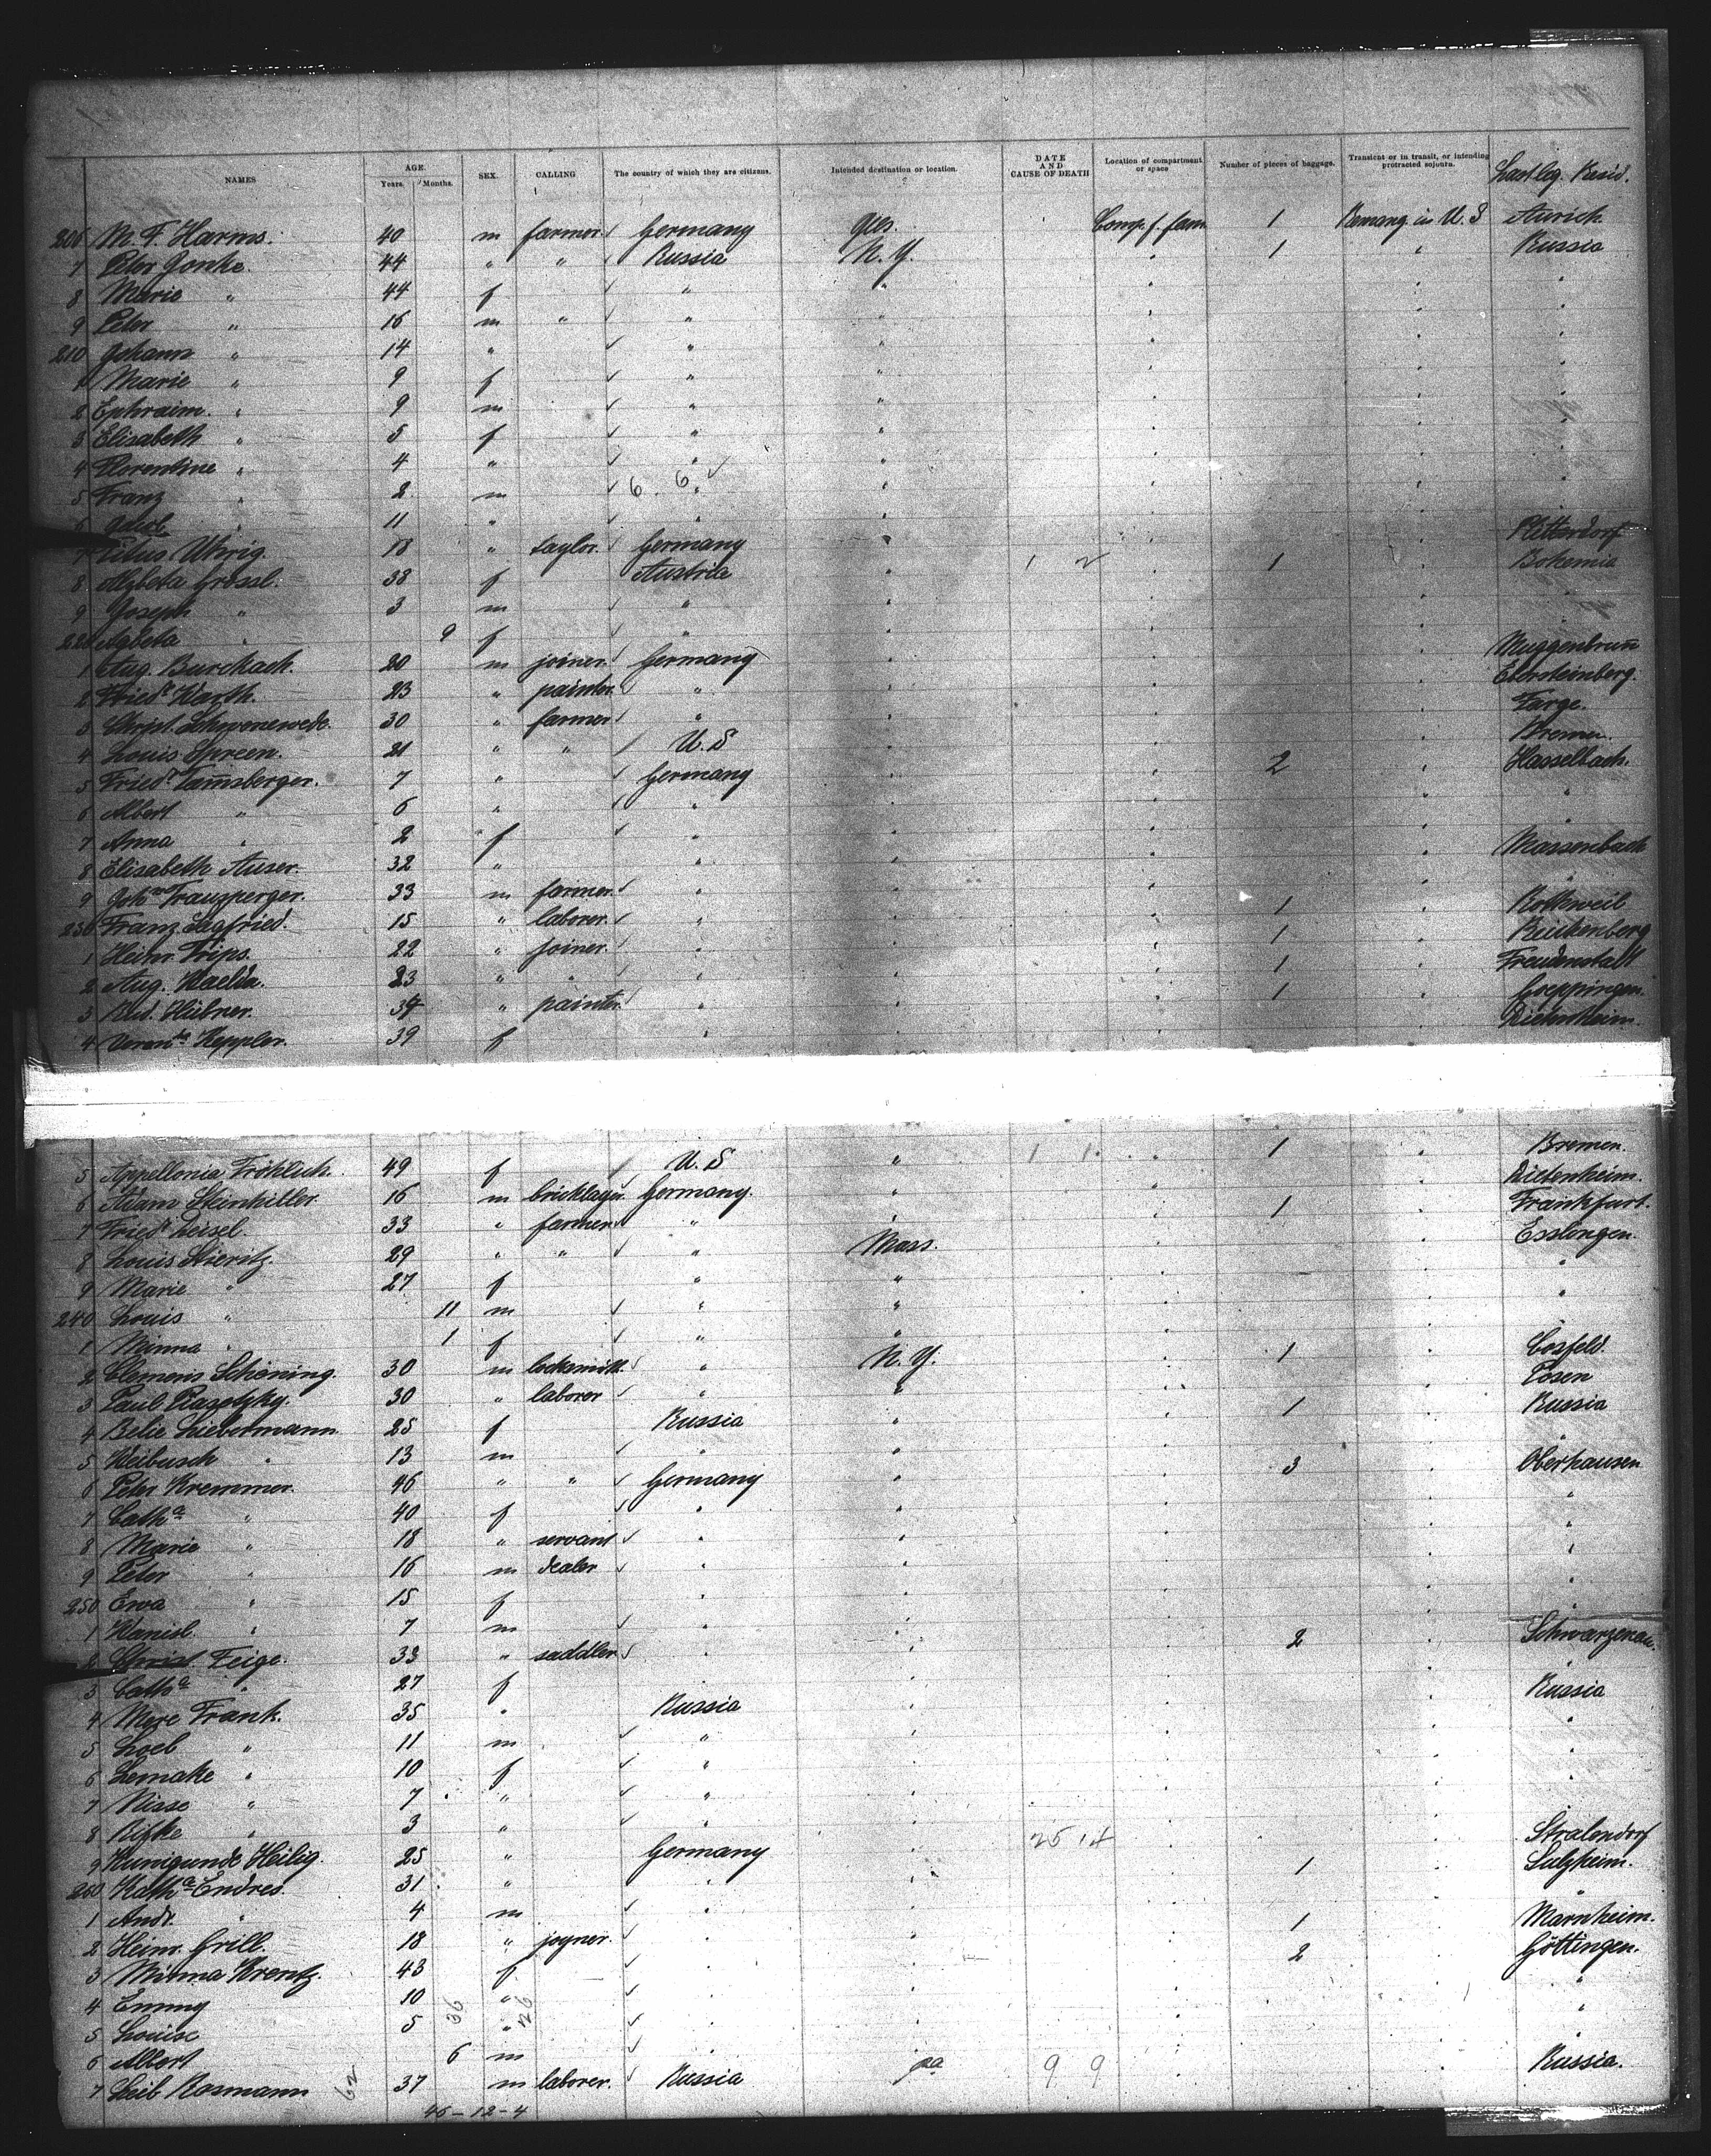 NAMES AGE. Years. Months. SEX. CALLING The country of which they are citizens. Intended destination or location. DATE AND CAUSE OF DEATH Location of compartment or space Number of pieces of baggage. Transient or in transit, or intending protracted sojourn. Last leg. Resid.
206 M. F. Harms. 40 m farmer Germany Comp. f. fam. 1 in U. S Aurich
7 Peter 44 " " Russia N. Y. 1 " Russia
8 Marie " 44 f " "
9 Peter " 16 m " " "
210 Johann " 14 " " "
1 Marie " 9 f " "
2 Ephraim. " 9 m " "
3 Elisabeth " 5 f " "
4 Florentine " 4 " " "
5 Franz " 2 m 6 6 " "
6 " 11 " " "
7 Titus Uhrig. 18 " taylor. Germany "
8 Grossl. 38 f Austria " 1 2 1 Bohemia
9 Joseph " 3 m " "
220 " 9 f " "
1 Aug. Burckach. 20 m joiner. Germany " Muggenbrunn
2 Friedr. Warth. 23 " painter " " Ebersteinberg.
3 Christ. Schwenewede. 30 " farmer " " Farge.
4 Louis Spreen. 21 " " U. S " Bremen.
5 Friedr. 7 " Germany " 2 Hasselbach.
6 Albert " 6 " " " "
7 Anna " 2 f " " "
8 Elisabeth Auser. 32 " " " Massenbach
9 33 m farmer. " " "
230 Franz 15 " laborer. " " 1 Rothweil
1 Heinr. Trips. 22 " joiner. " " 1 Reichenberg
2 Aug. 23 " " " " 1 Freudenstadt
3 Rud. Hübner. 34 " painter. " " 1 Goeppingen.
4 Keppler. 39 f " "
5 Appellonia Fröhlich. 49 f U. S " 1 1 1 Bremen.
6 Adam 16 m bricklayer. Germany. "
7 Friedr. Leisel. 33 " farmer " " 1 Frankfurt.
8 Louis 29 " " " Mass. Esslongen.
9 Marie " 27 f " " "
240 Louis " 11 m " " "
1 Minna " 1 f " "
2 Clemens Schöning. 30 m locksmith. " N. Y. 1 Cosfeld.
3 Paul 30 " laborer " " Posen
4 Belie Liebermann 25 f Russia " 1 Russia
5 Weibusch " 13 m " " "
6 Peter Kremmer. 46 " " Germany " 3 Oberhausen
7 Catha " 40 f " " "
8 Marie " 18 " servant " " "
9 Peter " 16 m dealer " " "
250 Ewa " 15 f " " "
1 " 7 m " " "
2 Christ Feige. 33 " saddler " " 2 Schwarzenau.
3 Catha " 27 f " "
4 Frank. 35 " Russia " Russia
5 Loeb " 11 m " " "
6 Lemake " 10 f " " "
7 Nisse " 7 " " " "
8 Rifke " 3 " " " "
9 Kunigunde Heilig. 25 " Germany " 25 14 Stralendorf
260 Katha Endres. 31 " " " 1 Sulzheim.
1 Andr. " 4 m " " "
2 Heinr. Grill. 18 " joyner. " " 1 Marnheim.
3 Minna Krentz. 43 f " " 2 Göttingen.
4 Emmy 10 " " " "
5 Louise 5 " " " "
6 Albert 6 m " " "
7 Leib Rosmann 37 m laborer. Russia pa 9 9 Russia.
36 26
62
46-12-4